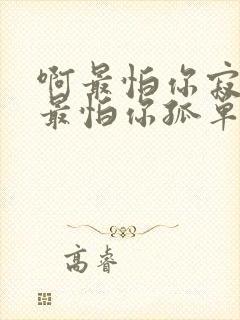 啊最怕你寂
最怕你孤单
高睿